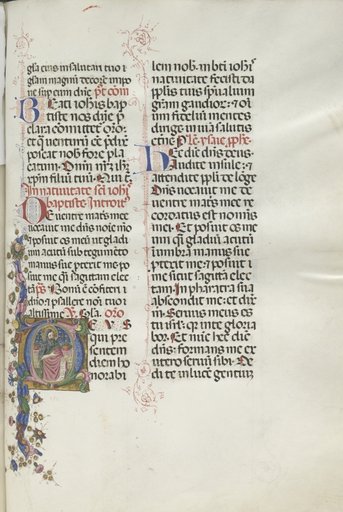 gl'a eius in salutari tuo ⁊
gl'iam magnū decorē impo
ne sup eum dn̄e. p̄t com̄
Beati ioh'is bap
tiste nos dn̄e p̄
clara comitet̄ or̄o:
et quē venturū cē p̄dix̄
poscat nob̄ fore pla
catum. Dnm̄ nr̄m ih'm
xpm̄ filiū tuū. Qui t.
In natiuitate sc̄i ioh'is
baptiste. Introit'
De uentre matris mee
uocauit me dn̄s noīe m̄o
⁊ posuit os meū ut gladi
um acutū sub tegumēto
manus sue ptexit me po
suit me q̄i sagittam elec
tā. p̄s. Bonū ē cōfiteri
dn̄o: ⁊ psallere noī tuo
altissime. V. Gl'a. oro
DEVS
qui pre
sentem
diem ho
norabi
lem nob̄ in bt̄i ioh'is
natiuitate fecisti: da
pplis tuis spūalium
gr̄am gaudior̄: ⁊ oi'u
um fidelium mentes
dirige in uiā salutis
etnē. P. l'c. ysaie p̄phe.
Hec dic̄ dn̄s deus.
Audite insule: ⁊
attendite ppl'i de lōge.
Dn̄s uocauit me de
uentre matris mee re
cordatus est nom̄is
mei. Et posuit os me
um q̄i gladiū acutū
in umbra manus sue
ptexit me: ⁊ posuit
me sicut sagittā elec
tam. In pharatra sua
abscondit me: et dix̄
m̄. Seruus meus es
tu isrl': q̄r in te gloria
bor. Et nūc hec dic̄
dn̄s: formans me ex
utero seruū sibi. De
di te in lucē gentium